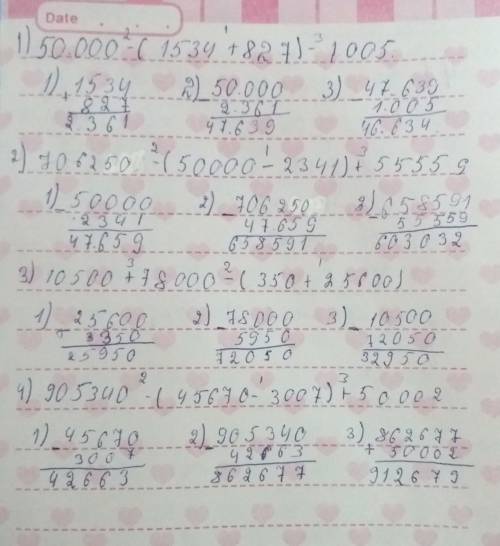 Date
1) 50.000 -² ( 1534 +¹ 827) -³ 1005.
1) 1534 2) 50.000 3) 47.639
+ 827 - 2.361 - 1.005
2.361 47.639 46.634
2) 706250 -² (50000 -¹ 2341) +³ 55559
1) 50000 2) 706250 3) 658591
- 2341 - 47659 - 55559
47659 658591 603032
3) 10500 +³ 78000 -² (350 +¹ 25600)
1) 25600 2) 78000 3) 10500
+ 350 - 5950 - 72050
25950 72050 32950
4) 905340 -² (45670 -¹ 3007) +³ 50002
1) 45670 2) 905340 3) 862677
- 3007 - 42663 + 50002
42663 862677 912679